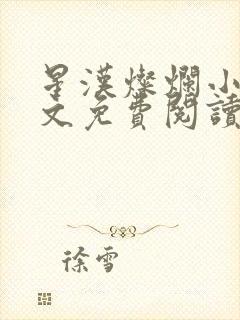 星漢燦爛小
文免費閱讀
徐雪